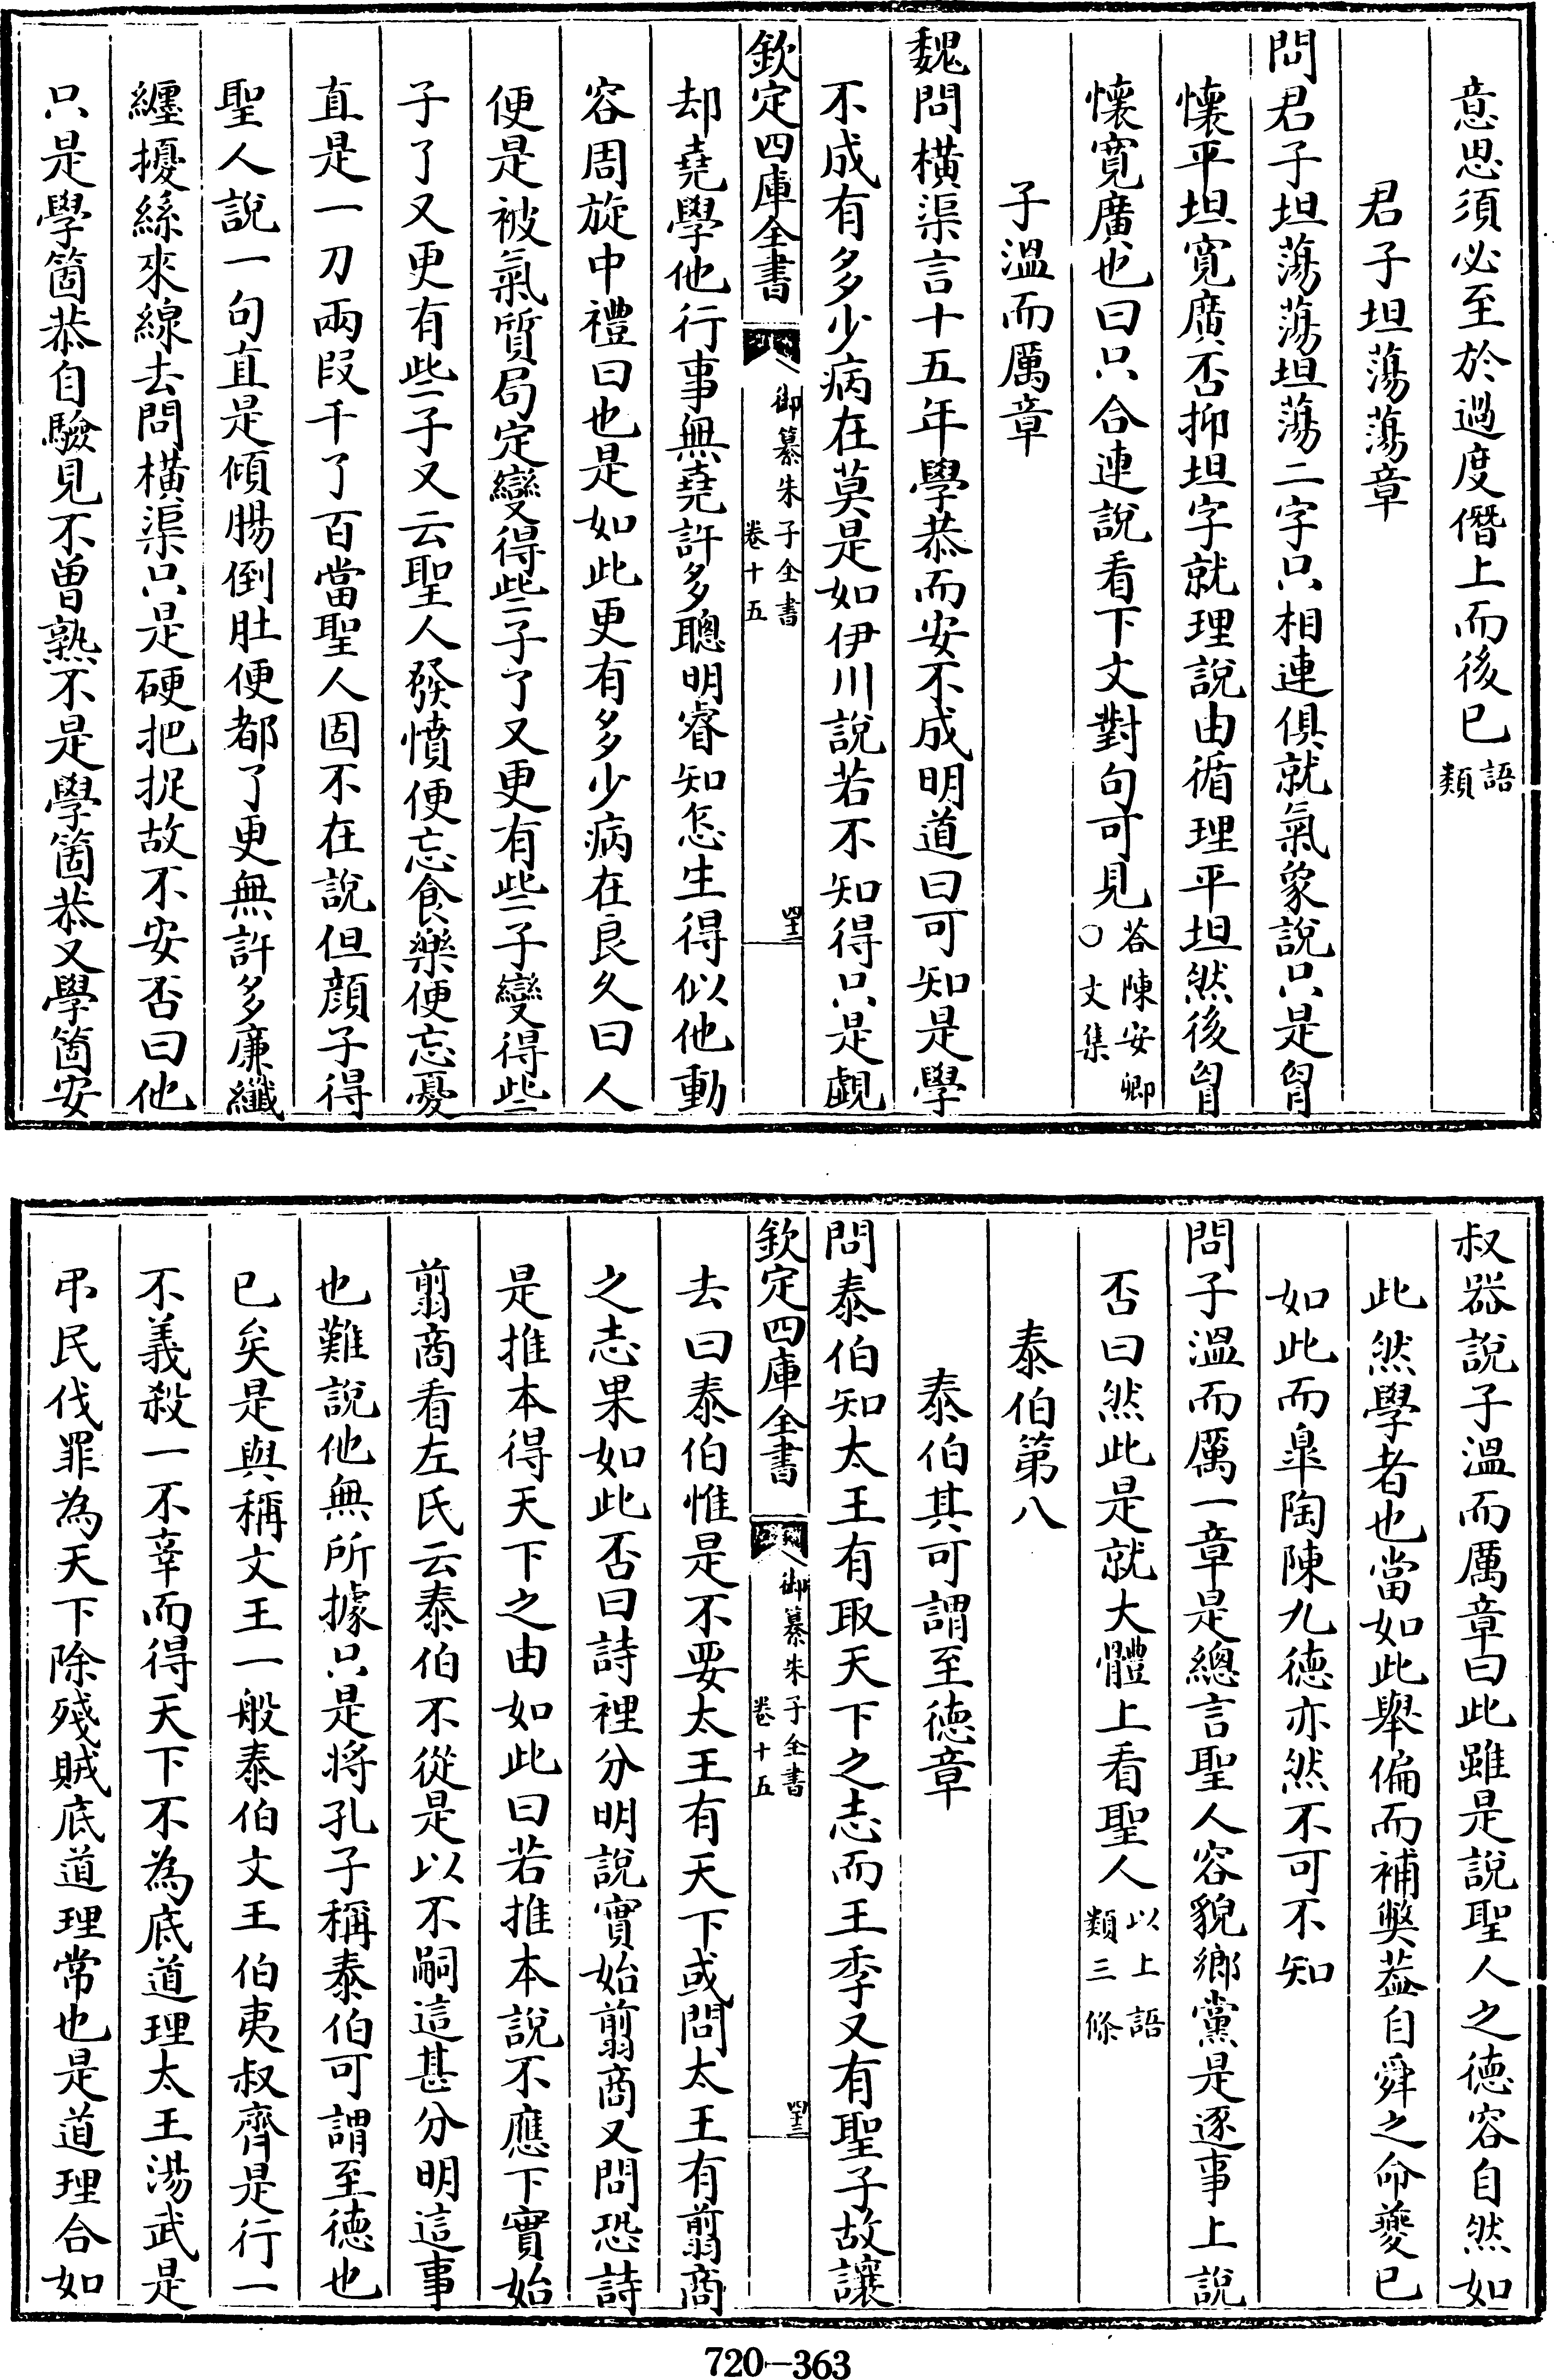 意思須必至於過度僭上而後已語類
君子坦蕩蕩章
問君子坦蕩蕩坦蕩二字只相連俱就氣象說只是胷
懷平坦寛廣否抑坦字就理說由循理平坦然後胷
懷寛廣也曰只合連說看下文對句可見荅陳安卿○文集
子溫而厲章
魏問橫渠言十五年學恭而安不成明道曰可知是學
不成有多少病在莫是如伊川說若不知得只是覷
欽定四庫全書
御纂朱子全書
卷十五
四十三
却堯學他行事無堯許多聰明睿知怎生得似他動
容周旋中禮曰也是如此更有多少病在良久曰人
便是被氣質局定變得些子了又更有些子變得些
子了又更有些子又云聖人發憤便忘食樂便忘憂
直是一刀兩段千了百當聖人固不在說但顔子得
聖人說一句直是傾腸倒肚便都了更無許多廉纖
纏擾絲來線去問橫渠只是硬把捉故不安否曰他
只是學箇恭自驗見不曽熟不是學箇恭又學箇安
叔器說子溫而厲章曰此雖是說聖人之德容自然如
此然學者也當如此舉偏而補弊葢自舜之命夔已
如此而臯陶陳九德亦然不可不知
問子溫而厲一章是總言聖人容貌鄉黨是逐事上說
否曰然此是就大體上看聖人以上語類三條
泰伯第八
泰伯其可謂至德章
問泰伯知太王有取天下之志而王季又有聖子故讓
欽定四庫全書
御纂朱子全書
卷十五
四十三
去曰泰伯惟是不要太王有天下或問太王有翦商
之志果如此否曰詩裡分明說實始翦商又問恐詩
是推本得天下之由如此曰若推本說不應下實始
翦商看左氏云泰伯不從是以不嗣這甚分明這事
也難說他無所據只是將孔子稱泰伯可謂至德也
已矣是與稱文王一般泰伯文王伯夷叔齊是行一
不義殺一不辜而得天下不為底道理太王湯武是
弔民伐罪為天下除殘賊底道理常也是道理合如
720-363